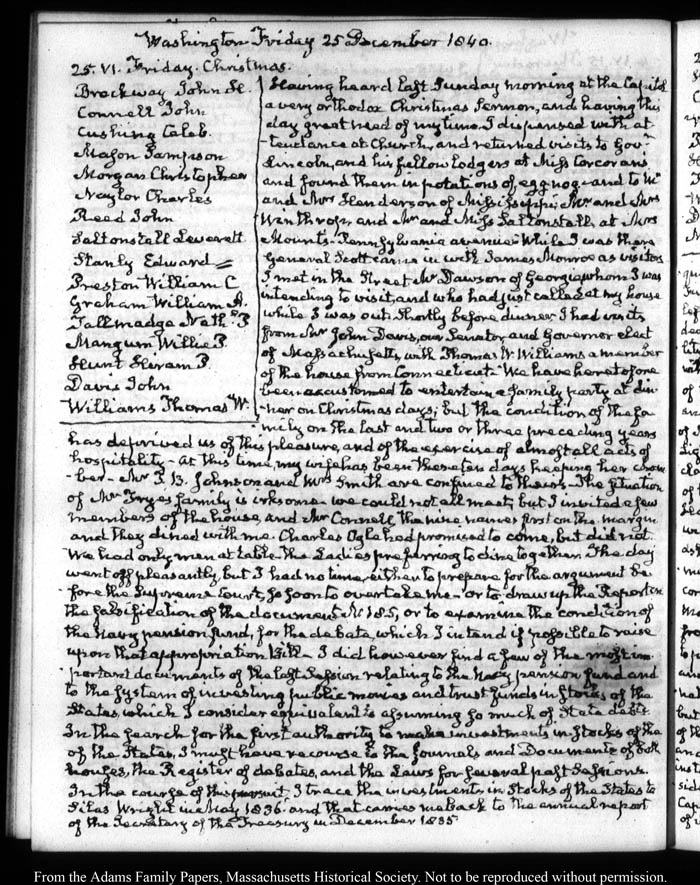 Washington Friday 25 December 1840.
25. VI. Friday. Christmas.
Brockway John H.
Connell John
Cushing Caleb.
Mason Sampson
Morgan Christopher
Naylor Charles
Reed John
Saltonstall Leverett
Stanly Edward
Preston William C
Graham William A.
Tallmadge Nath.l P
Mangum Willie P.
Hunt Hiram P.
Davis John
Williams Thomas W.
Having heard last Sunday morning at the Capitol
a very orthodox Christmas Sermon, and having this
day great need of my time, I dispensed with at-
-tendance at Church, and returned visits to Govr.
Lincoln, and his fellow lodgers at Miss Corcorans
and found them in potations of egg nog—and to Mr
and Mrs Henderson of Mississippi; Mr and Mrs
Winthrop, and Mr and Miss Saltonstall, at Mrs
Mounts—Pennsylvania avenue—While I was there
General Scott came in with James Monroe as visitors
I met in the Street Mr Dawson of Georgia whom I was
intending to visit, and who had just called at my house
while I was out. Shortly before dinner I had visits
from Mr John Davis, our Senator, and Governor elect
of Massachusetts, with Thomas W. Williams a member
of the house from Connecticut. We have heretofore
been accustomed to entertain a family party at din-
-ner on Christmas days; but the condition of the fa-
-mily on the last and two or three preceding years
has deprived us of this pleasure, and of the exercise of almost all acts of
hospitality—At this time, my wife has been these ten days keeping her cham-
ber—Mr T. B. Johnson and Mrs Smith are confined to theirs—The situation
of Mr Fryes family is irksome—we could not all meet; but I invited a few
members of the house, and Mr Connell the nine names first on the margin
and they dined with me. Charles Ogle had promised to come, but did not.
We had only men at table the Ladies preferring to dine together. The day
went off pleasantly, but I had no time, either to prepare for the argument be-
fore the Supreme Court, so soon to overtake me—or to draw up the Report on
the falsification of the document N. 185, or to examine the condition of
the Navy pension fund, for the debate, which I intend if possible to raise
upon that appropriation Bill—I did however find a few of the most im-
portant documents of the last Session relating to the Navy pension fund and
to the System of investing public monies and trust funds in Stocks of the
States, which I consider equivalent to assuming so much of State debts
In the search for the first authority to make investments in Stocks of the
of the States, I must have recourse to the Journals and Documents of both
houses, the Register of debates, and the Laws for several past Sessions.
In the course of this pursuit, I trace the investments in Stocks of the States to
Silas Wright in May 1836 and that carries me back to the annual report
of the Secretary of the Treasury in December 1835
From the Adams Family Papers, Massachusetts Historical Society. Not to be reproduced without permission.